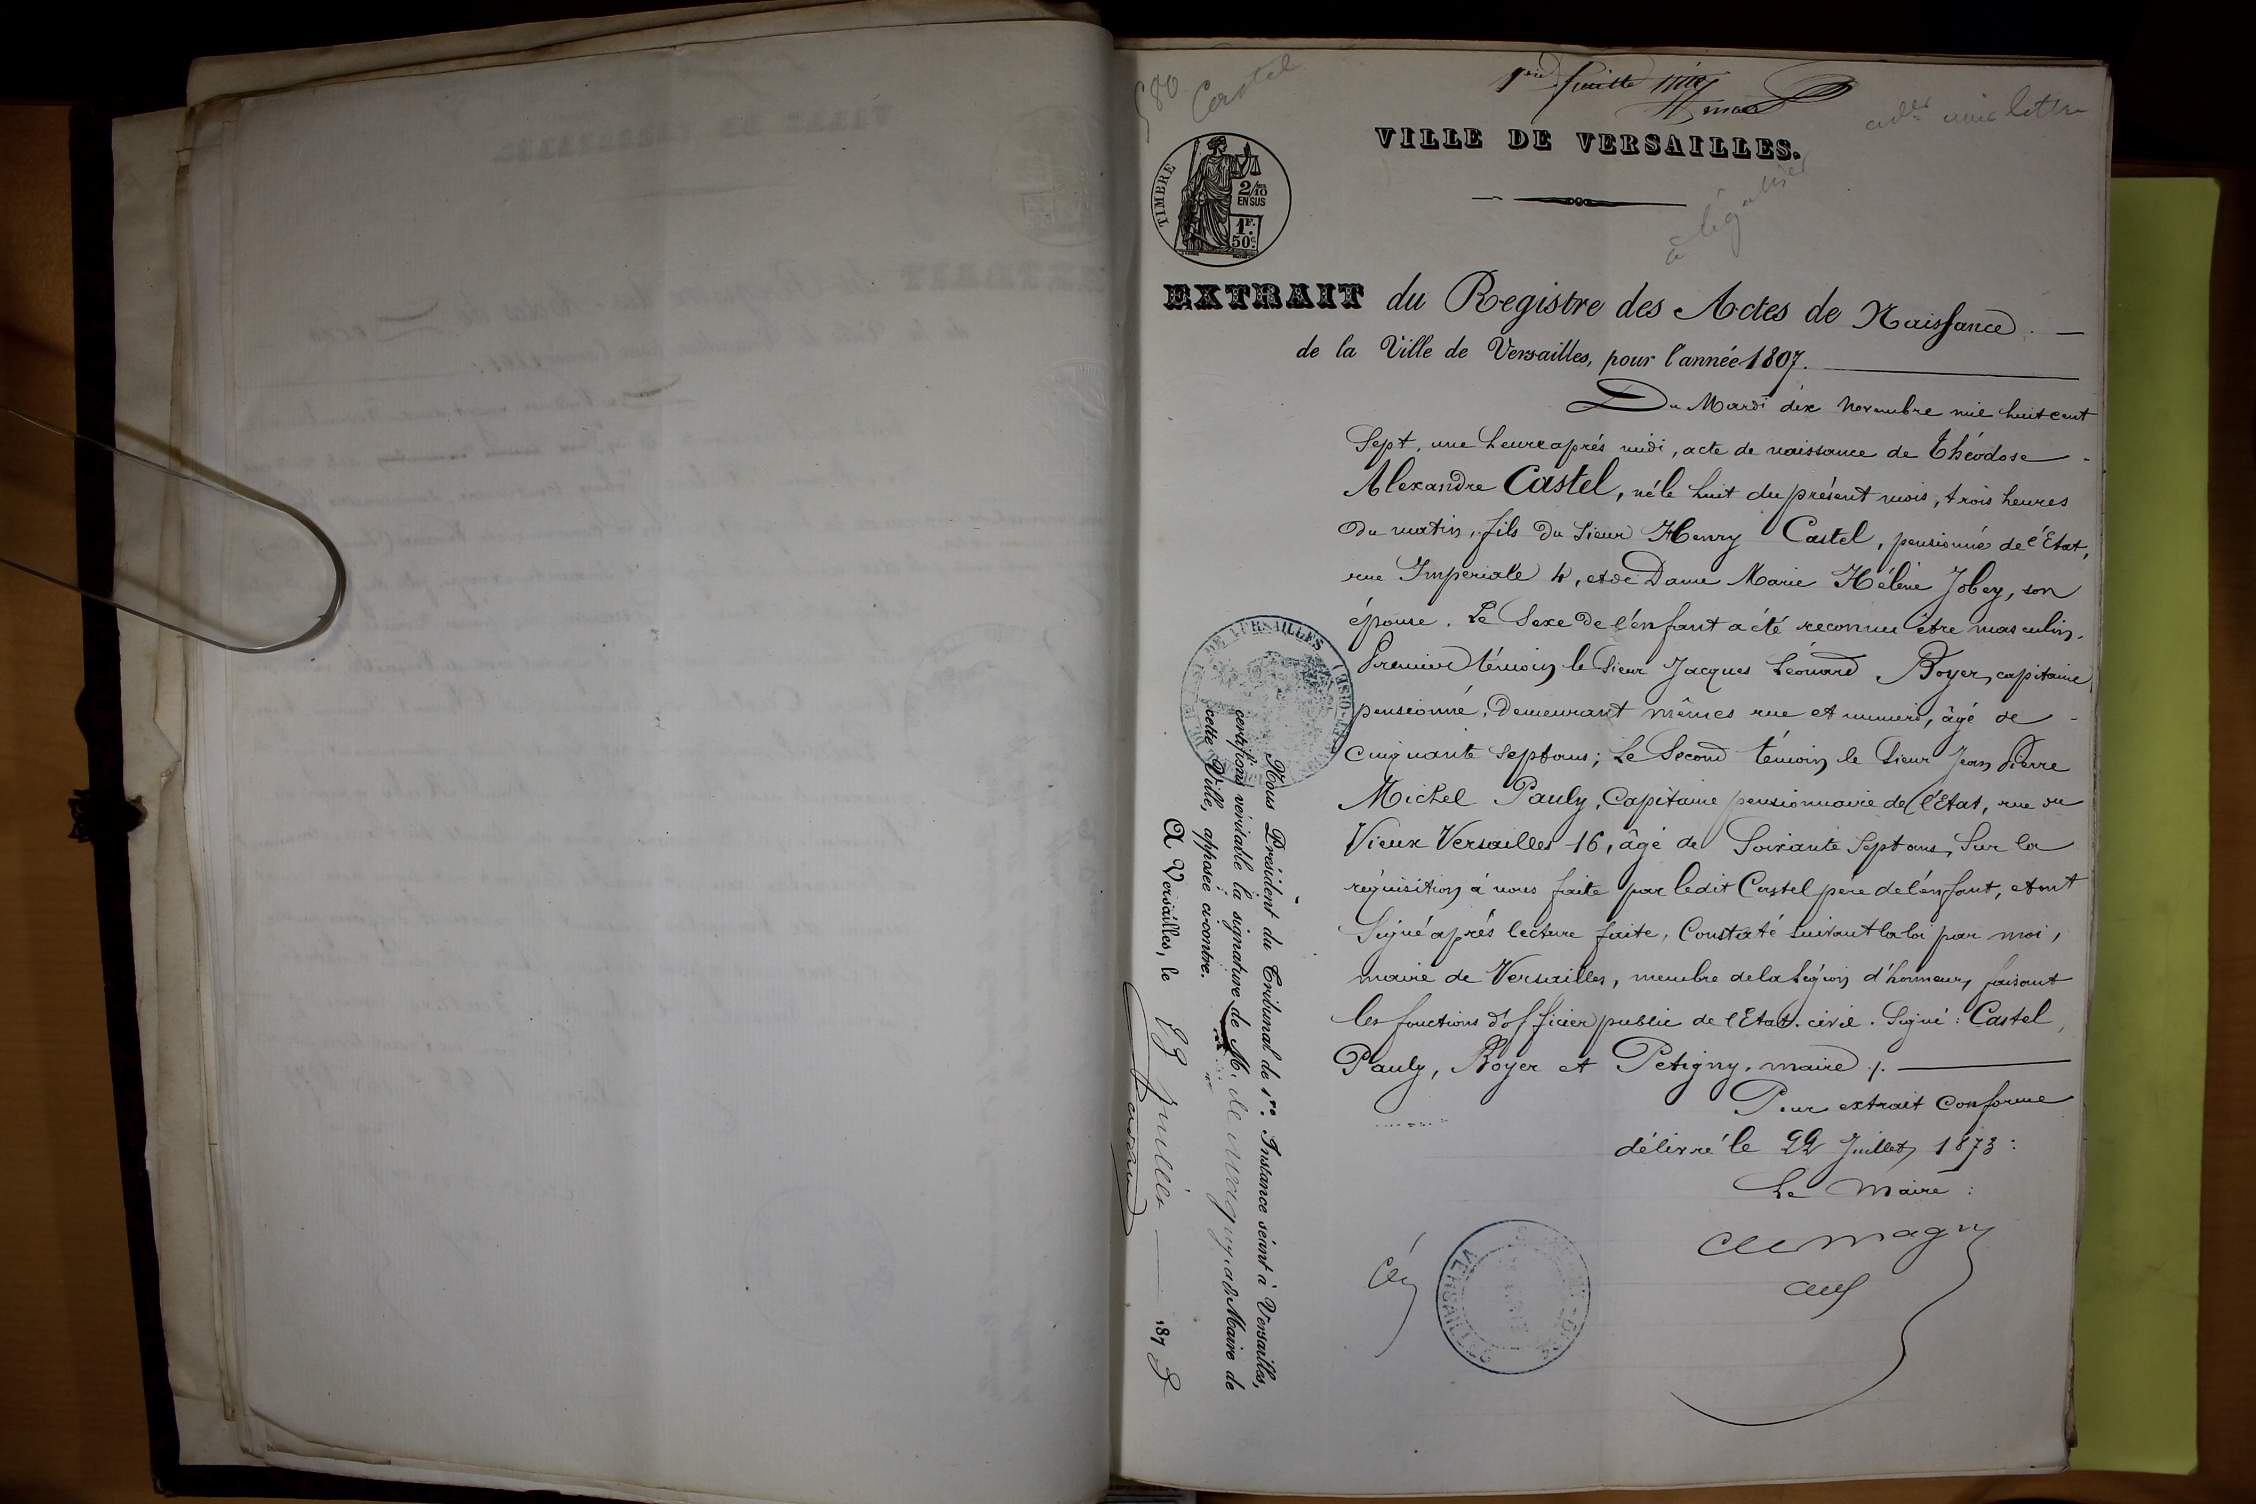 580
Castel
VILLE DE VERSAILLES.
une lettre
à légaliser
TIMBRE
2/10
EN SUS
1F.
50c.
EXTRAIT du Registre des Actes de Naissance. —
de la Ville de Versailles, pour l'année 1807.
Du Mardi dix Novembre mil huit cent
Sept, une heure après midi, acte de naissance de Théodose
Alexandre Castel, né le huit du présent mois, trois heures
du matin, fils du Sieur Henry Castel, pensionné de l'Etat,
rue Impériale 4, et de Dame Marie Hélène Jobey, son
épouse. Le Sexe de l'enfant a été reconnu être masculin.
Premier témoin le Sieur Jacques Léonard Boyer, capitaine
pensionné, demeurant mêmes rue et numéro, âgé de
cinquante Sept ans; Le Second témoin le Sieur Jean Pierre
Michel Pauly, Capitaine pensionnaire de l'Etat, rue du
Vieux Versailles 16, âgé de Soixante Sept ans, Sur la
réquisition à nous faite par ledit Castel père de l'enfant, et ont
Signé après lecture faite, Constaté suivant la loi par moi,
maire de Versailles, membre de la Légion d'honneur, faisant
les fonctions d'officier public de l'Etat-civil. Signé: Castel,
Pauly, Boyer et Petigny, maire ./.
Pour extrait Conforme
délivré le 22 Juillet 1873:
Le Maire:
VERSAILLES
DE VERSAILLES
Nous Président du Tribunal de 1re Instance séant à Versailles,
certifions véritable la signature de M. de magny, adt Maire de
cette Ville, apposée ci-contre.
A Versailles, le 23 juillet 1873